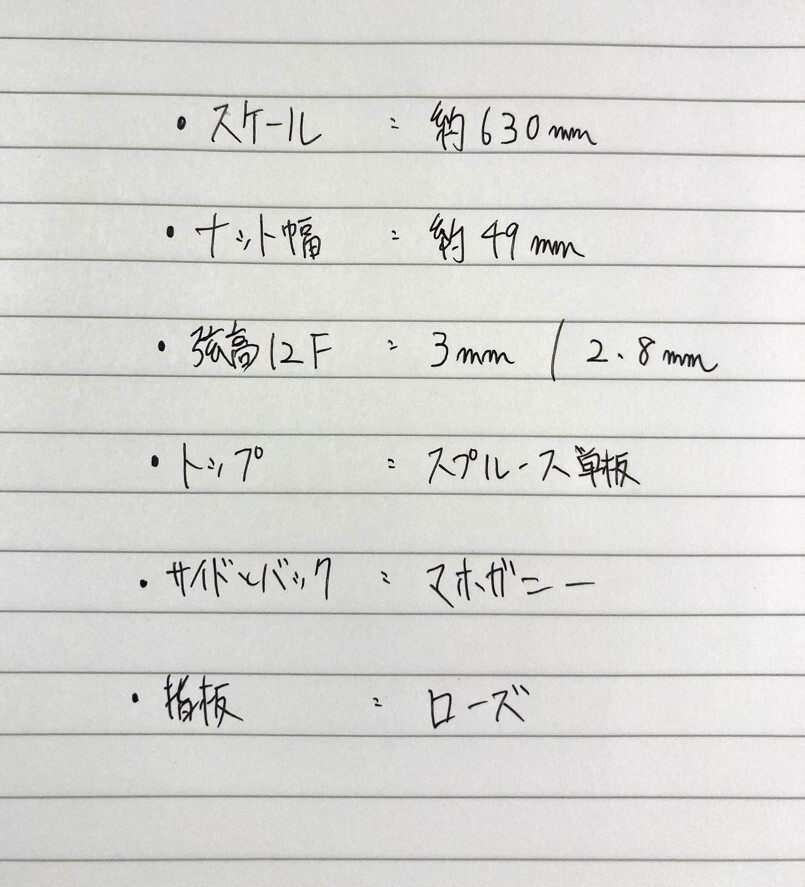 ・スケール : 約630mm
・ナット幅 : 約49mm
・弦高12F : 3mm / 2.8mm
・トップ : スプルース単板
・サイドとバック : マホガニー
・指板 : ローズ